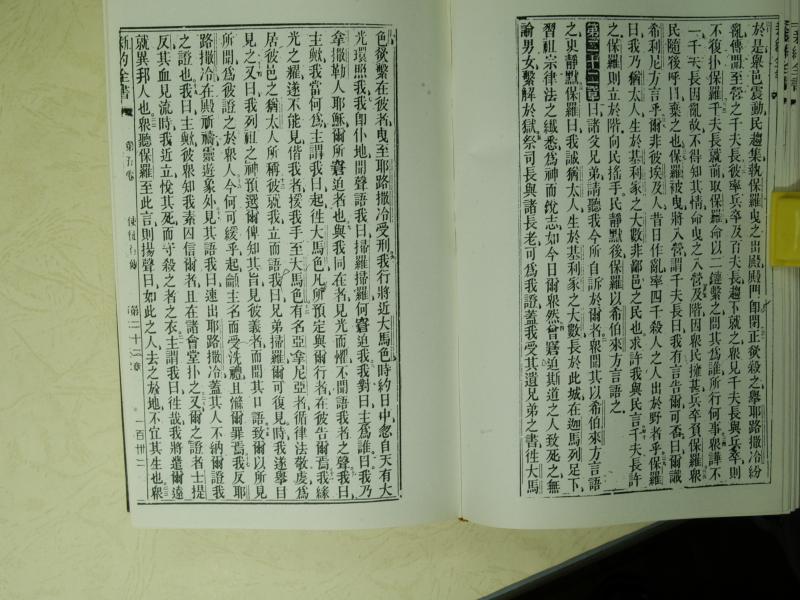 於是舉邑震動民趨集執保羅曳之出殿殿門即閉正欲殺之擧耶路撒冷紛
亂傳聞至營之千夫長彼率兵卒及百夫長趨下就之衆見千夫長與兵卒則
不復扑保羅千夫長就前取保羅命以二鏈繫之問其爲誰所行何事衆譁不
一千夫長因亂故不得知其情命曳之入營及階因衆民擁甚兵卒負保羅衆
民隨後呼曰棄之也保羅被曳將入營謂千夫長曰我有言告爾可否曰爾識
希利尼方言乎爾非彼埃及人昔日作亂率四千殺人之人出於野者乎保羅
曰我乃猶太人生於基利家之大數非鄙邑之民也求許我與民言千夫長許
之保羅則立於階向民搖手民靜默後保羅以希伯來方言語之
第二十二章曰諸父兄弟請聽我今所自訴於爾者衆聞其以希伯來方言語
之更靜默保羅曰我誠猶太人生於基利家之大數長於此城在迦馬列足下
習祖宗律法之纎悉爲神而銳志如今日爾衆然曾窘迫斯道之人致死之無
論男女繫解於獄祭司長與諸長老可爲我證蓋我受其遺兄弟之書徃大馬
色欲繫在彼者曳至耶路撒冷受刑我行將近大馬色時約日中忽自天有大
光環照我我卽仆地聞聲語我曰掃羅掃羅何窘迫我我對曰主爲誰曰我乃
拿撒勒人耶穌爾所窘迫者也與我同在者見光而懼不聞語我者之聲我曰
主歟我當何爲主謂我曰起徃大馬色凡所預定與爾行者在彼告爾焉我緣
光之耀遂不能見偕我者援我手至大馬色有名亞拿尼亞者循律法敬虔爲
居彼邑之猶太人所稱彼就我立而語我曰兄弟掃羅爾可復見時我遂擧目
見之又曰我列祖之神預選爾俾知其旨見彼義者而聞其口語致爾以所見
所聞爲彼證之於衆人今何可緩乎起龥主名而受洗禮且滌爾罪焉我反耶
路撒冷在殿祈禱靈遊象外見其語我曰速出耶路撒冷蓋其人不納爾證我
之證也我曰主歟彼衆知我素囚信爾者且在諸會堂扑之又爾之證者士提
反其血見流時我近立悅其死而守殺之者之衣主謂我曰徃哉我將遣爾遠
就異邦人也衆聽保羅至此言則揚聲曰如此之人去之於地不宜其生也衆
新約全書
第五卷
使徒行傳
第二十二章
一百卅二